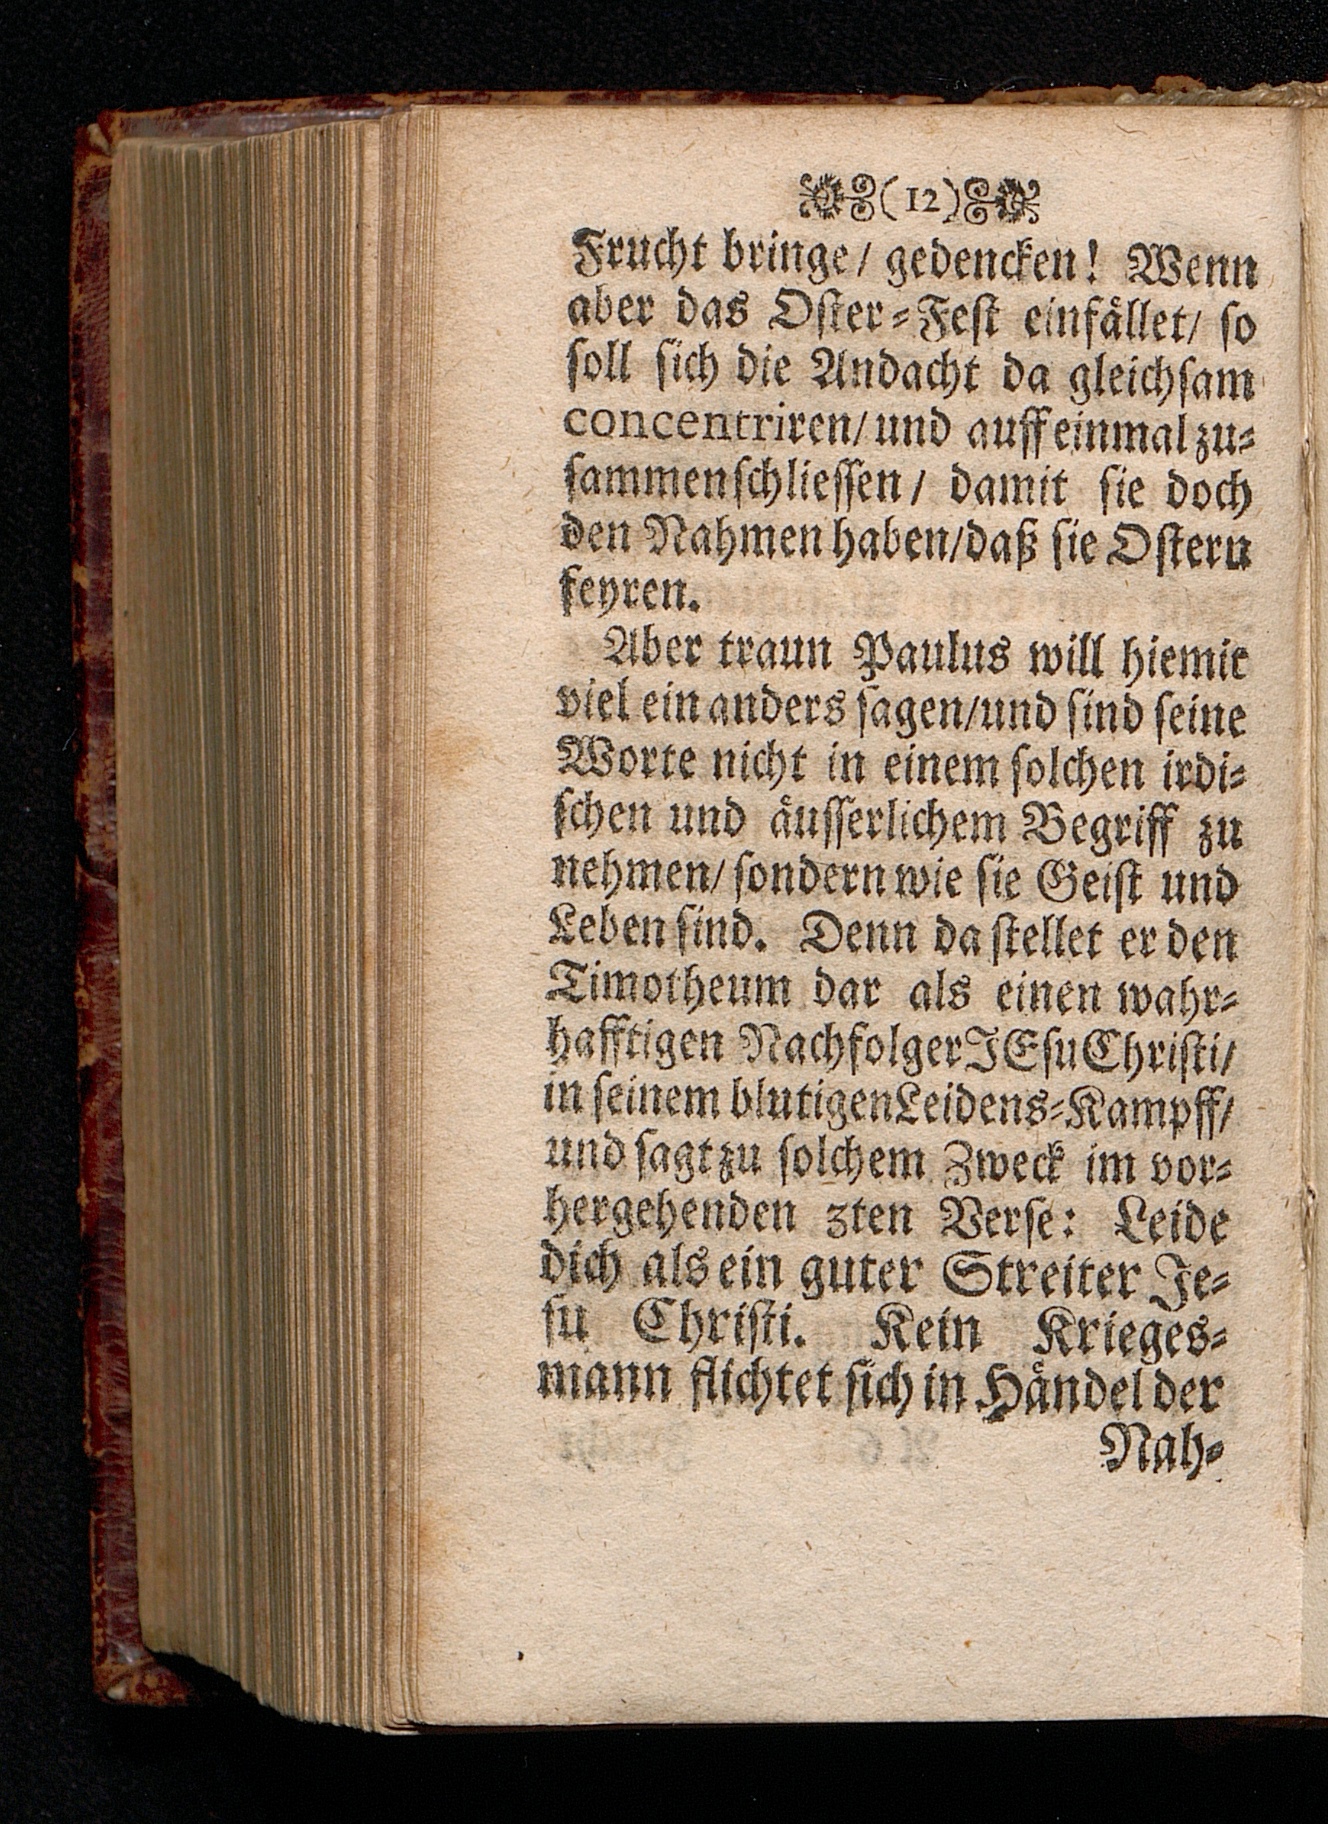 (12)
Frucht bringe/ gedencken! Wenn
aber das Oſter⸗Feſt einfaͤllet/ ſo
ſoll ſich die Andacht da gleichſam
concentriren/ und auff einmal zu⸗
ſammen ſchlieſſen/ damit ſie doch
den Nahmen haben/ daß ſie Oſtern
feyren.
Aber traun Paulus will hiemit
viel ein anders ſagen/ und ſind ſeine
Worte nicht in einem ſolchen irdi⸗
ſchen und aͤuſſerlichem Begriff zu
nehmen/ ſondern wie ſie Geiſt und
Leben ſind. Denn da ſtellet er den
Timotheum dar als einen wahr⸗
hafftigen Nachfolger JEſu Chriſti/
in ſeinem blutigen Leidens⸗Kampff/
und ſagt zu ſolchem Zweck im vor⸗
hergehenden 3ten Verſe: Leide
dich als ein guter Streiter Je⸗
ſu Chriſti. Kein Krieges⸗
mann flichtet ſich in Haͤndel der
Nah⸗